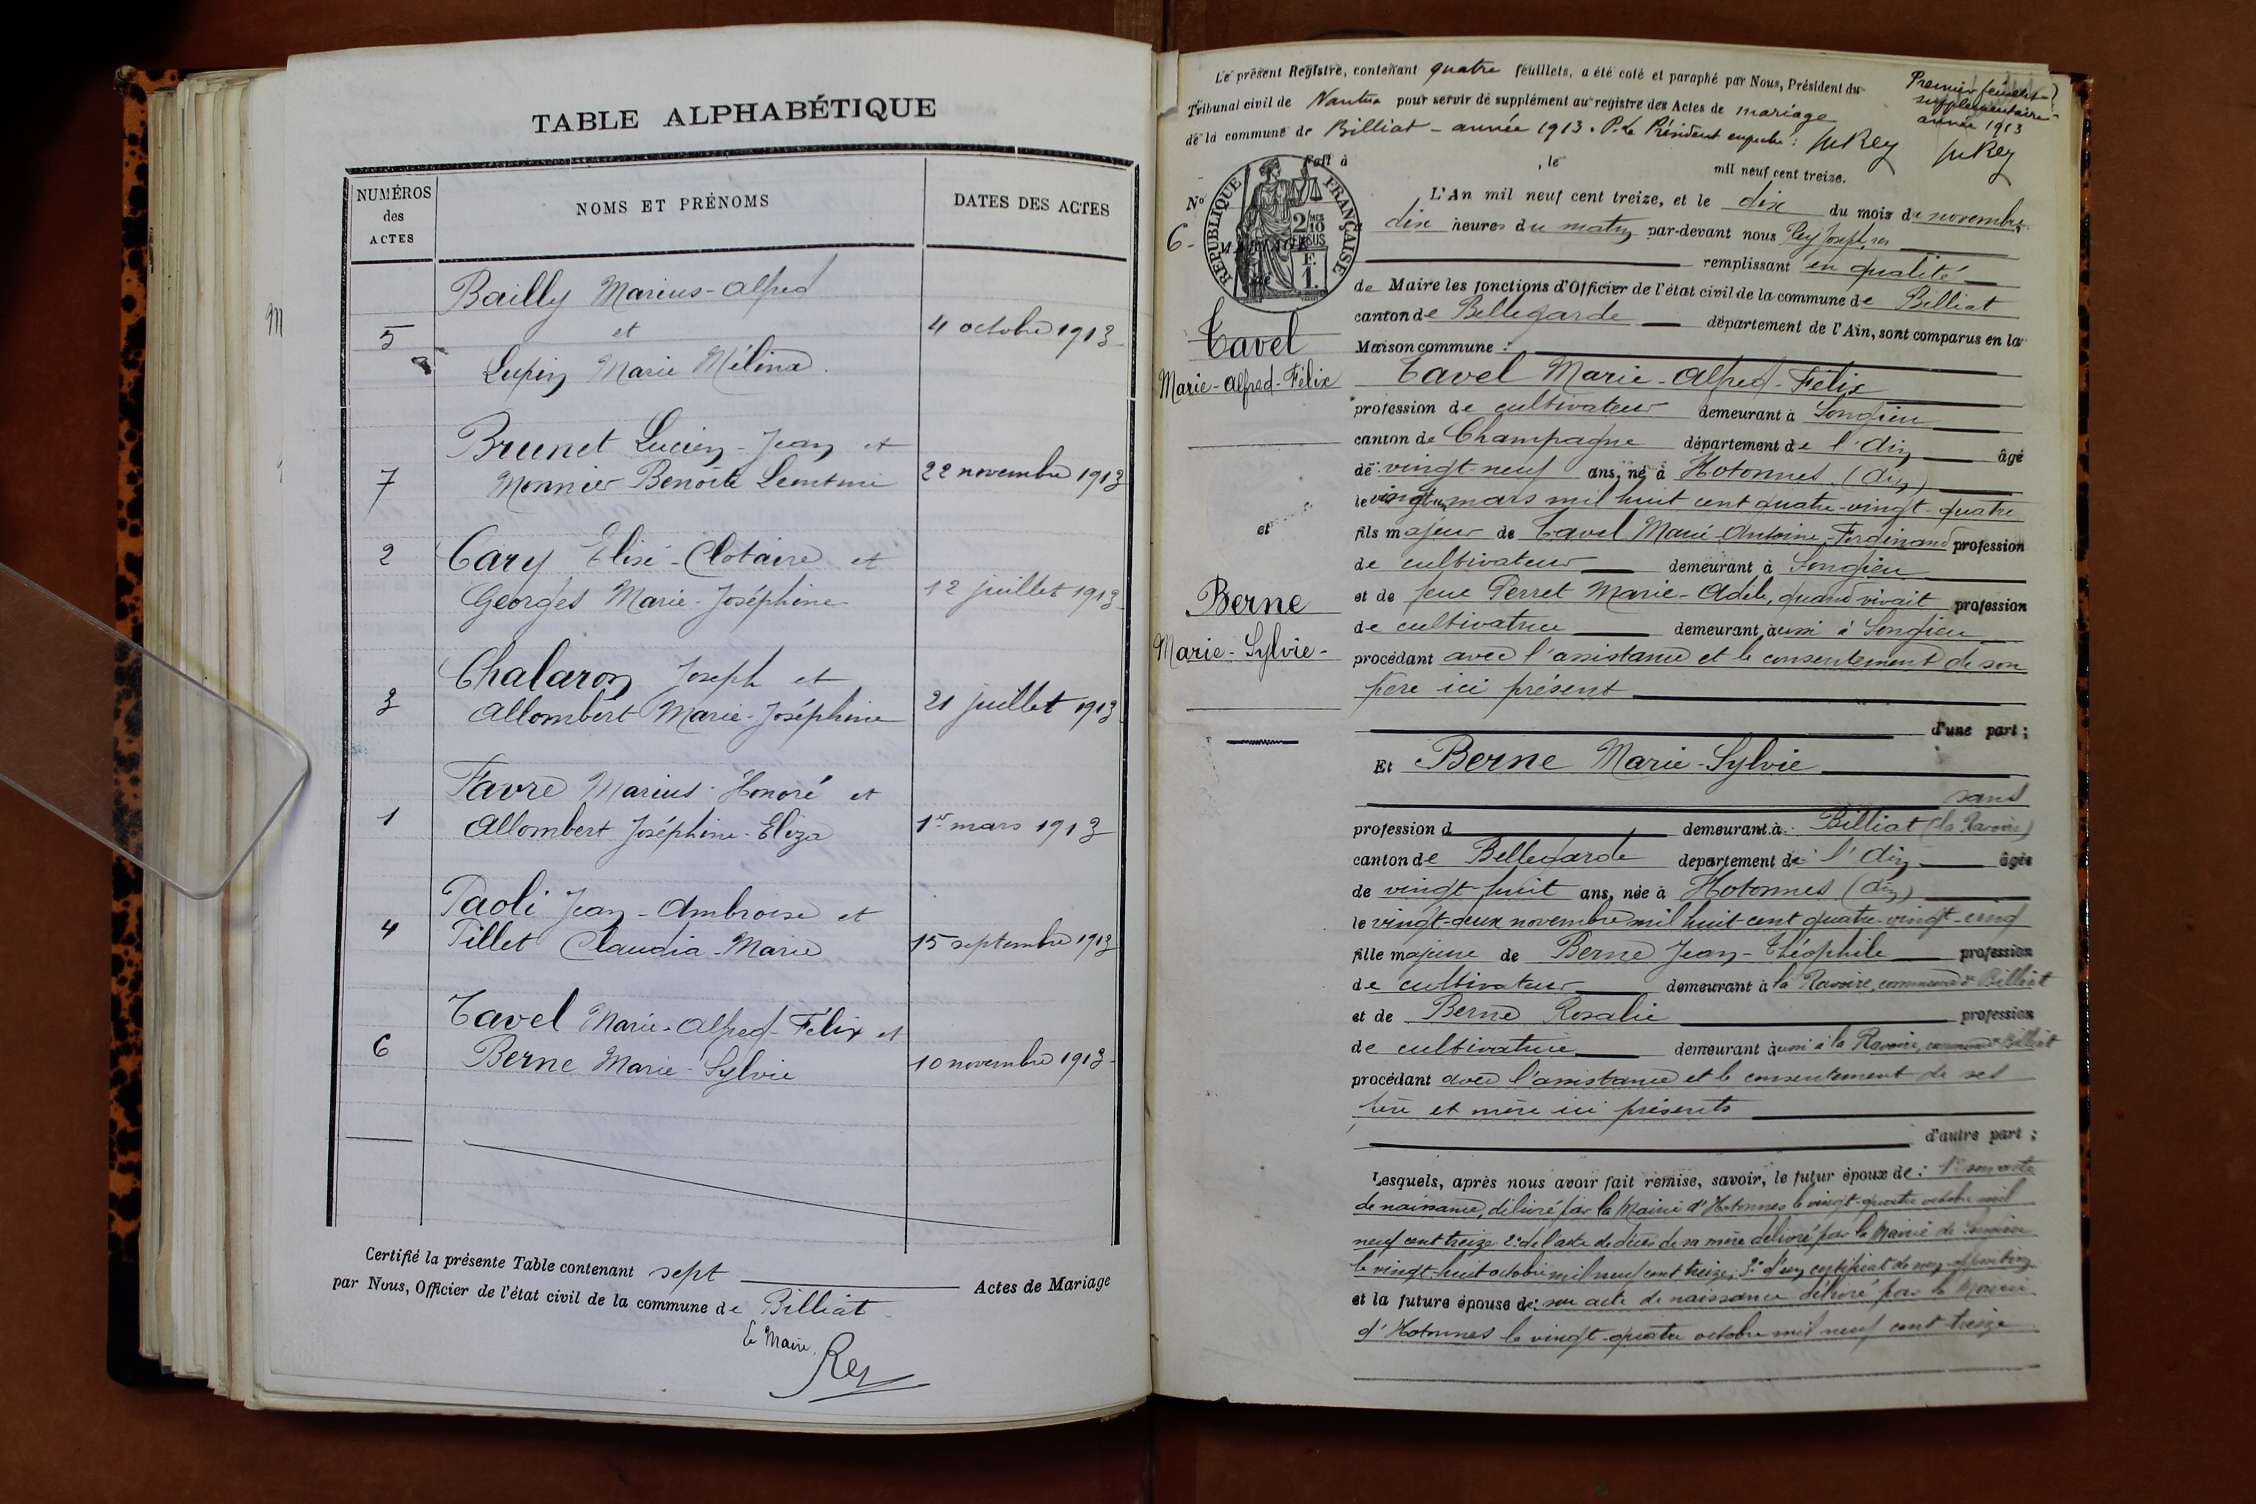 TABLE ALPHABÉTIQUE
NUMÉROS des ACTES
NOMS ET PRÉNOMS
DATES DES ACTES
M
Bailly Marius-Alfred
5 et 4 octobre 1913
Lupin Marie Mélina.
Brunet Lucien-Jean et
7 Monnier Benoite Leontine 22 novembre 1913
2 Cary Elisé-Clotaire et
Georges Marie-Joséphine 12 juillet 1913
Chalaron Joseph et
3 Allombert Marie-Joséphine 21 juillet 1913
Favre Marius-Honoré et
1 Allombert Joséphine-Eliza 1er mars 1913
Paoli Jean-Ambroise et
4 Pillet Claudia-Marie 15 septembre 1913
Tavel Marie-Alfred-Félix et
6 Berne Marie-Sylvie 10 novembre 1913
Certifié la présente Table contenant sept Actes de Mariage
par Nous, Officier de l'état civil de la commune de Billiat
Le Maire,
Rey
Le présent Registre, contenant quatre feuillets, a été coté et paraphé par Nous, Président du
Tribunal civil de Nantua pour servir de supplément au registre des Actes de mariage
de la commune de Billiat - année 1913. P. Le Président empêché :
Premier feuillet
supplémentaire
année 1913
Fait à , le mil neuf cent treize.
RÉPUBLIQUE FRANÇAISE
N° 6-
L'An mil neuf cent treize, et le dix du mois de novembre
dix heures du matin par-devant nous Rey Joseph,
remplissant en qualité
de Maire les fonctions d'Officier de l'état civil de la commune de Billiat
canton de Bellegarde département de l'Ain, sont comparus en la
Maison commune :
Tavel
Marie-Alfred-Félix
et
Berne
Marie-Sylvie-
Tavel Marie-Alfred-Félix
profession de cultivateur demeurant à Songieu
canton de Champagne département de l'Ain âgé
de vingt-neuf ans, né à Hotonnes (Ain)
le vingt un mars mil huit cent quatre-vingt-quatre
fils majeur de Tavel Marie-Antoine-Ferdinand profession
de cultivateur demeurant à Songieu
et de feue Perret Marie-Adèle, quand vivait profession
de cultivatrice demeurant aussi à Songieu
procédant avec l'assistance et le consentement de son
père ici présent
d'une part ;
Et Berne Marie-Sylvie
sans
profession d demeurant à Billiat (la Ravoire)
canton de Bellegarde département de l'Ain âgée
de vingt-huit ans, née à Hotonnes (Ain)
le vingt-deux novembre mil huit-cent quatre-vingt-cinq
fille majeure de Berne Jean-Théophile profession
de cultivateur demeurant à la Ravoire, commune de Billiat
et de Berne Rosalie profession
de cultivatrice demeurant aussi à la Ravoire, commune de Billiat
procédant avec l'assistance et le consentement de ses
père et mère ici présents
d'autre part ;
Lesquels, après nous avoir fait remise, savoir, le futur époux de : 1° son acte
de naissance, délivré par la Mairie d'Hotonnes le vingt-quatre octobre mil
neuf cent treize 2° de l'acte de décès de sa mère délivré par la Mairie de Songieu
le vingt-huit octobre mil neuf cent treize, 3° d'un certificat de non-opposition
et la future épouse de : son acte de naissance délivré par la Mairie
d'Hotonnes le vingt-quatre octobre mil neuf cent treize